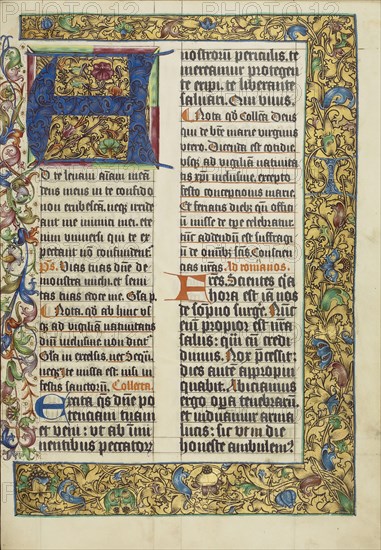 A
D te levavi animam meam
deus meus in te confido
non erubescam. neqz irride
ant me inimici mei. ete
nim universi qui te ex
pectant non confundent.
ps. Vias tuas dne de
monstra michi. et semi
tas tuas edoce me. Gla p.
Nota. qd ab hinc us
qz ad vigiliam nativitatis
dni inclusive. non dicit
Gla in excelsis. nec Sequen.
neqz Ite missa est. nisi in
festis sanctorum. Collecta.
Excita qs domine po
tenciam tuam
et veni: ut ab immi
nentibus peccatorum
nostrorum periculis. te
mereamur protegente
eripi. te liberante
salvari. Qui vivis.
Nota qd Collecta Deus
qui de bte marie virginis
utero. Dicenda est cotidie
usqz ad vigiliam nativita
tis xpi inclusive. excepto
festo conceptionis marie.
Et feriatis diebz qn offici
um misse de tpe celebratur.
tunc addendum est suffragi
um de omnibz sanctis. Conscien
tias nras. Ad romanos.
Fres. Scientes quia
hora est iam nos
de sopno surge. Nunc
enim propior est nra
salus: quam cum credi
dimus. Nox precessit:
dies autem appropin
quabit. Abiciamus
ergo opera tenebrarum.
et induamur arma
lucis: sic ut in die
honeste ambulemus.